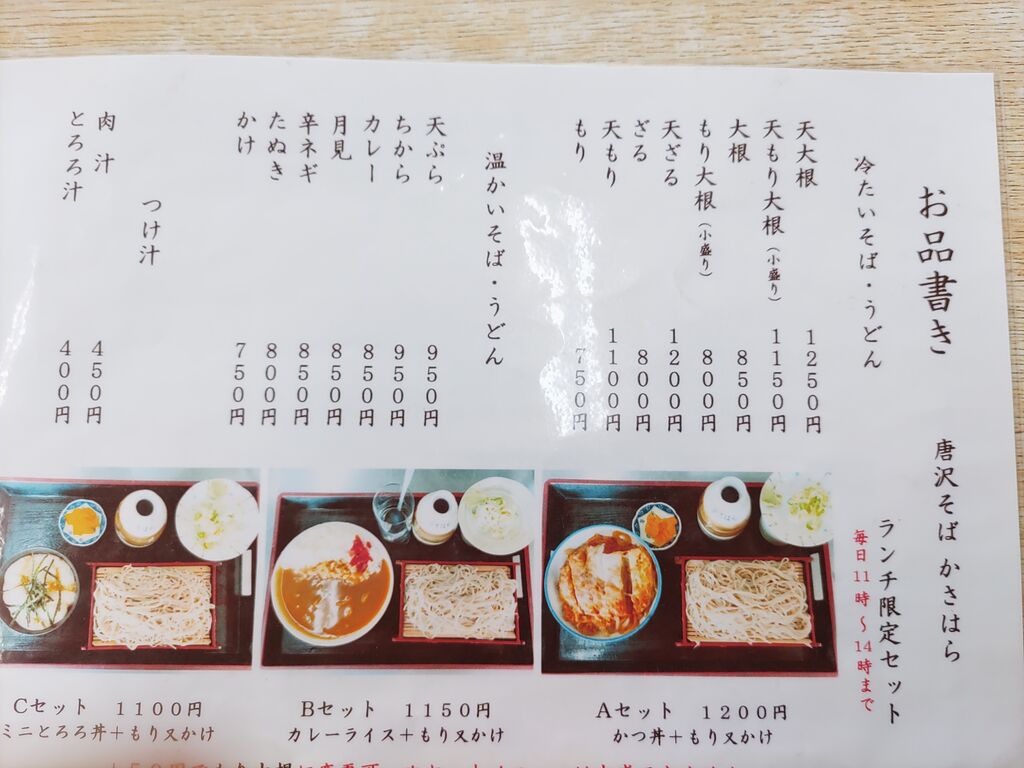 お品書き
唐沢そば かさはら
冷たいそば・うどん
天大根 1250円
天もり大根(小盛り) 1150円
大根 850円
もり大根(小盛り) 800円
天ざる 1200円
ざる 800円
天もり 1100円
もり 750円
温かいそば・うどん
天ぷら 950円
ちから 950円
カレー 850円
月見 850円
辛ネギ 850円
たぬき 800円
かけ 750円
つけ汁
肉汁 450円
とろろ汁 400円
ランチ限定セット
毎日11時~14時まで
Aセット 1200円
かつ丼+もり又かけ
Bセット 1150円
カレーライス+もり又かけ
Cセット 1100円
ミニとろろ丼+もり又かけ